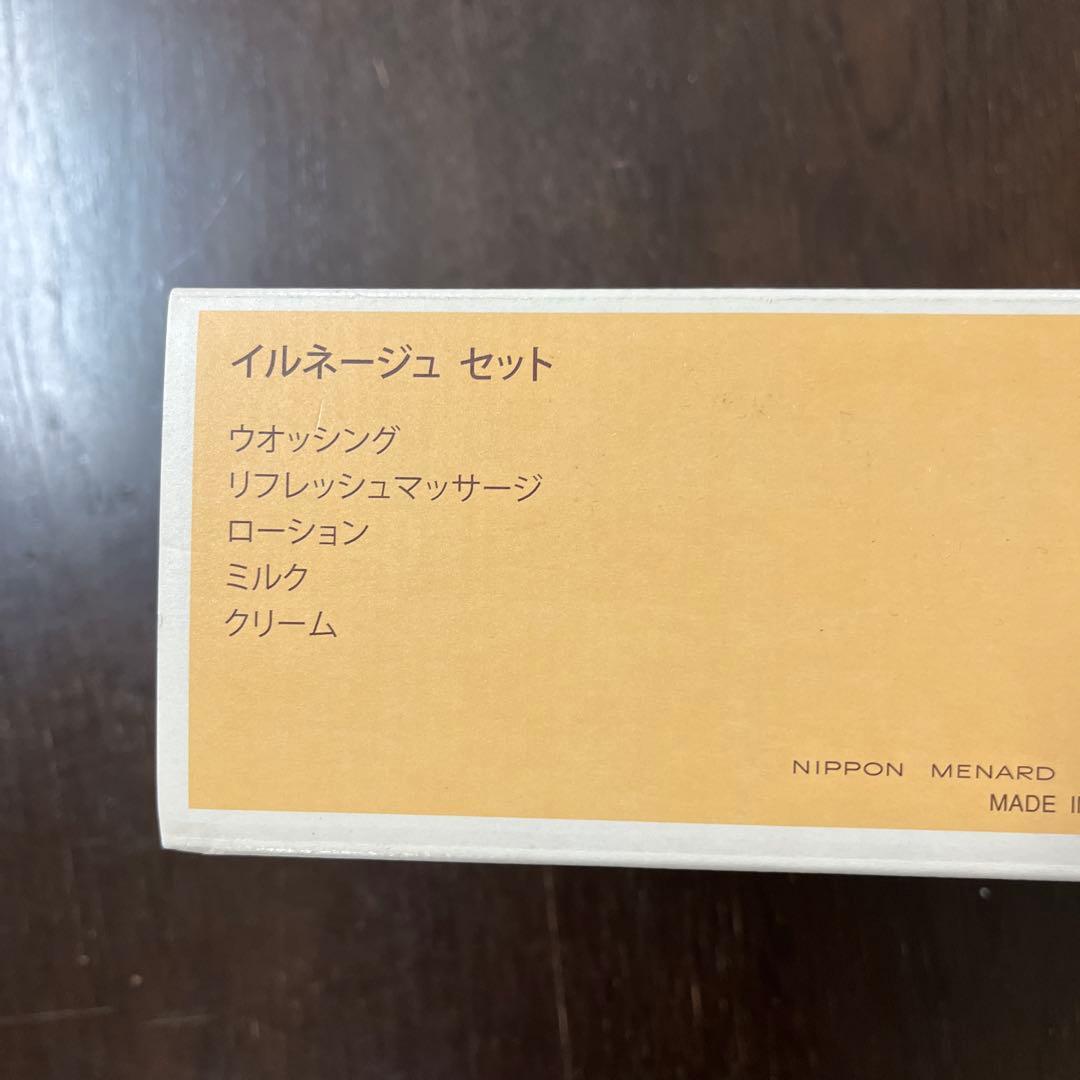 イルネージュ セット
ウオッシング
リフレッシュマッサージ
ローション
ミルク
クリーム
NIPPON MENARD
MADE